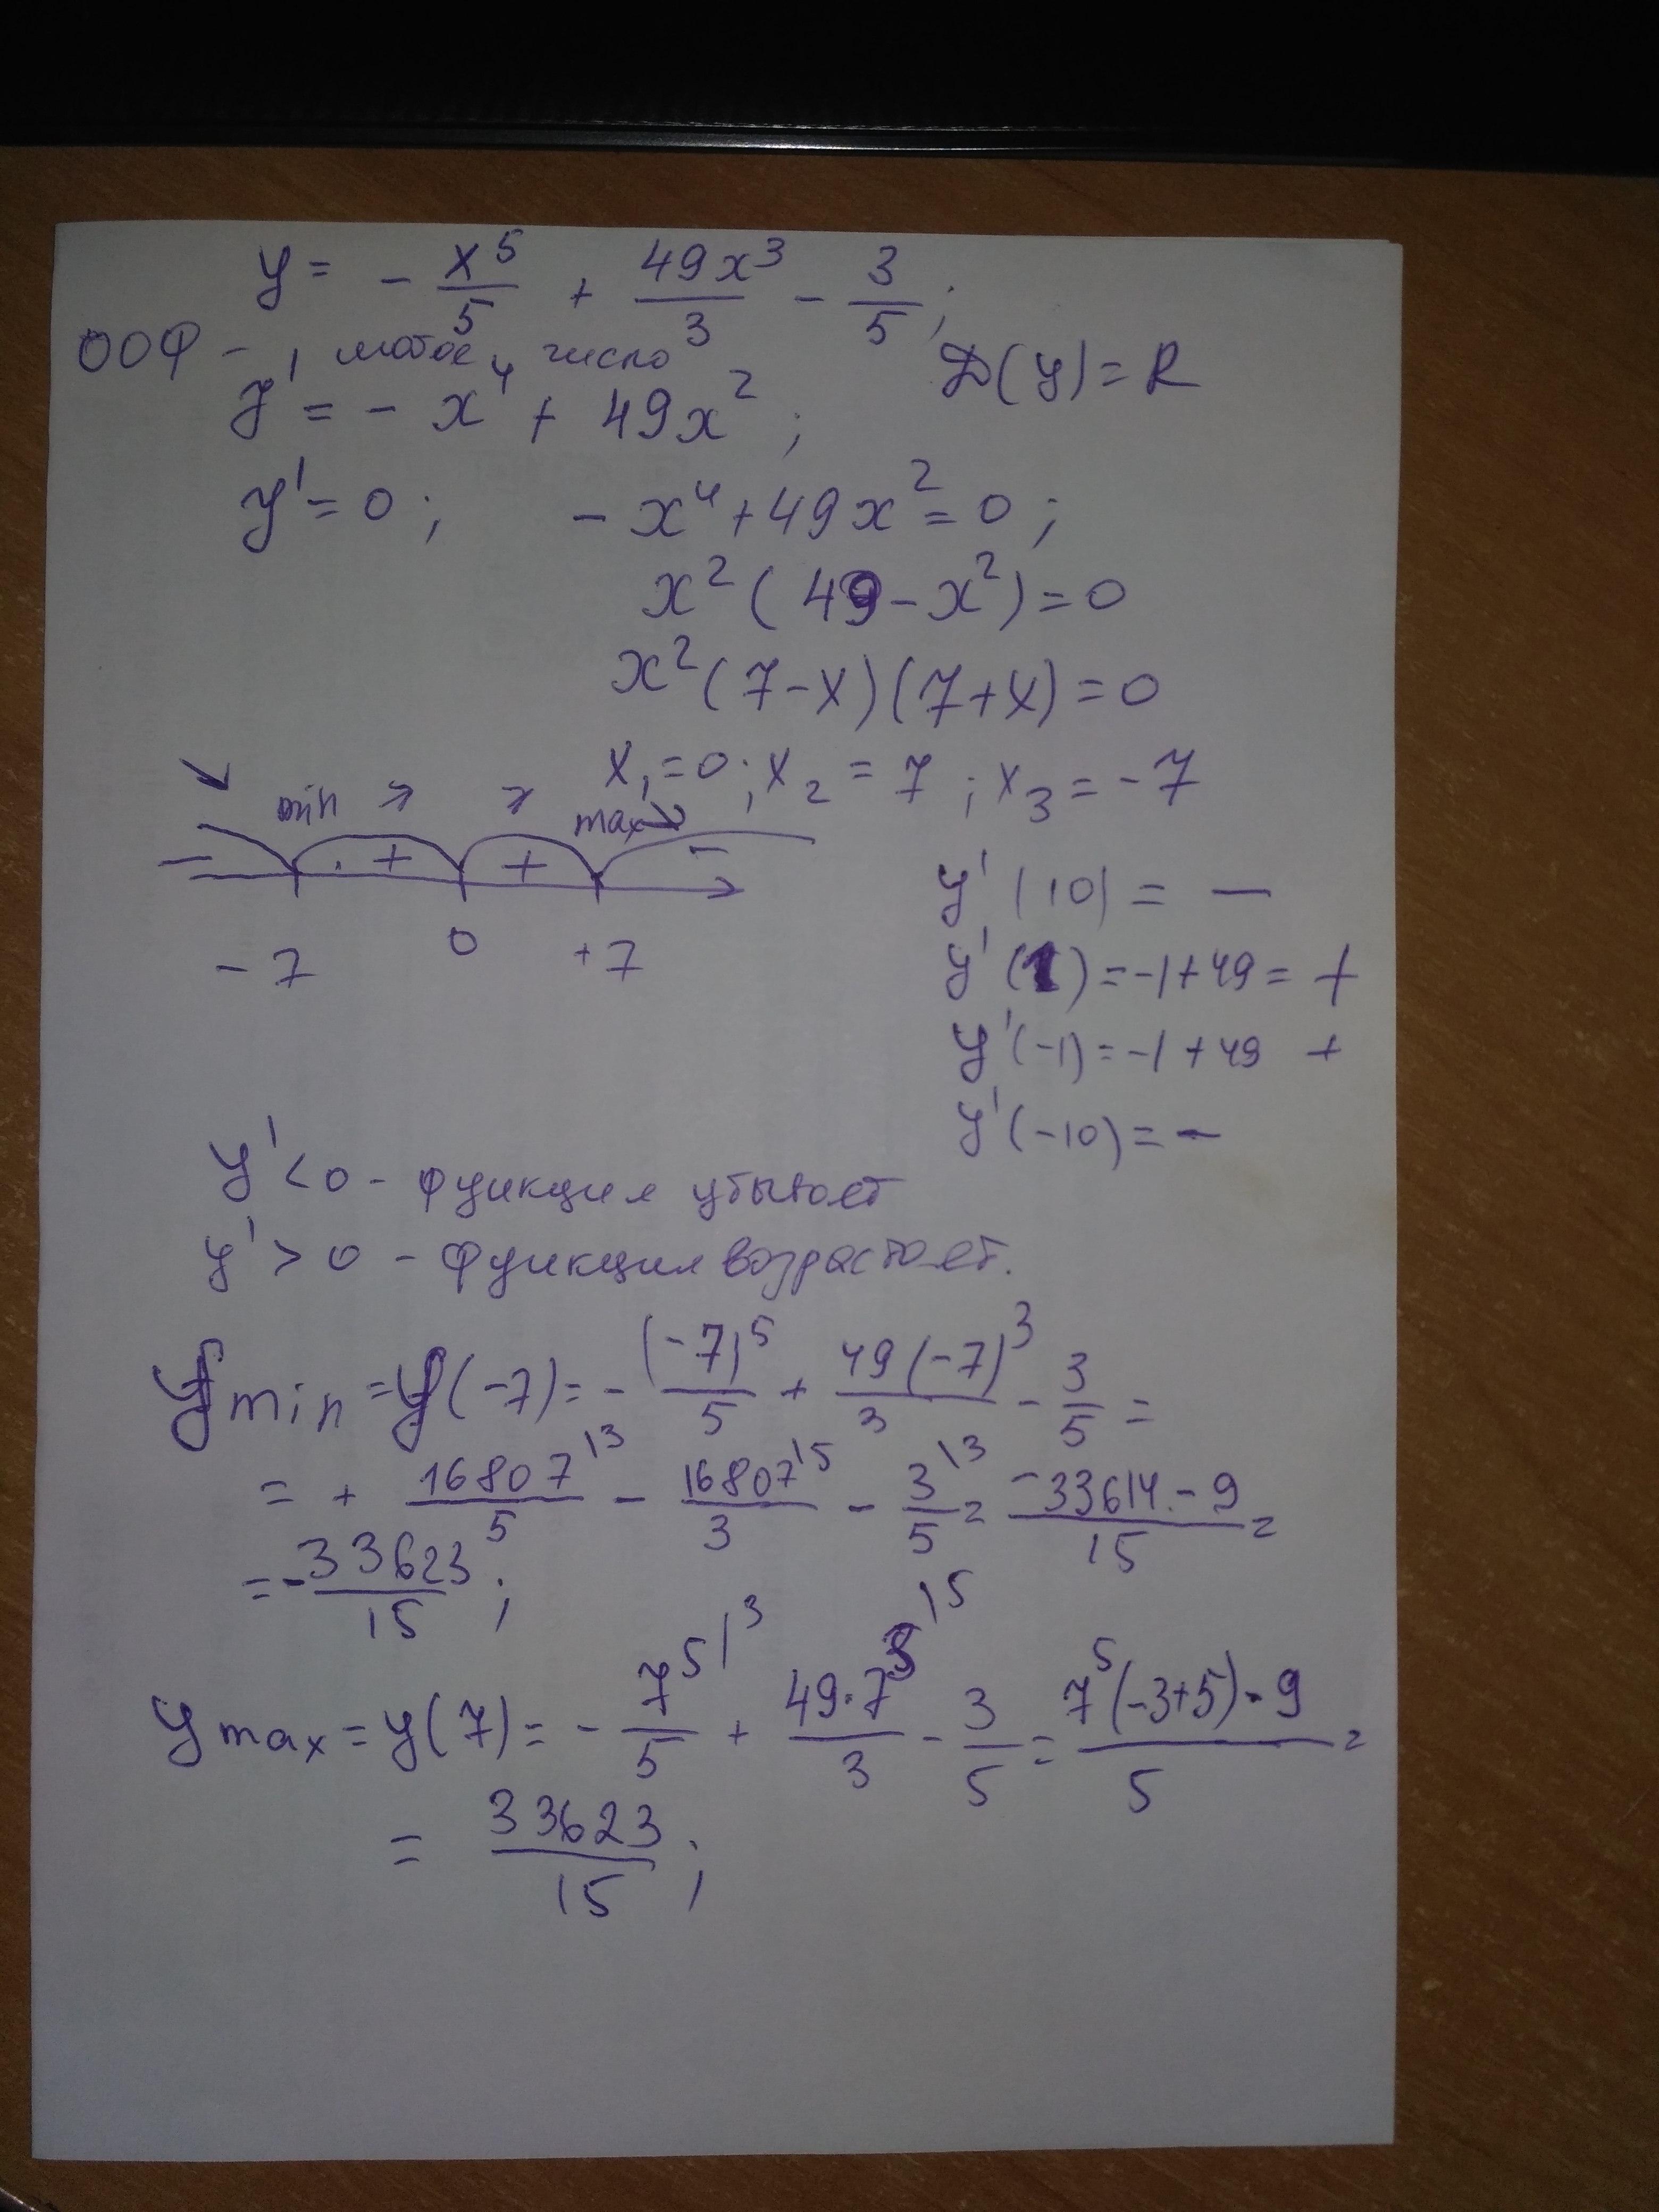 y = - x⁵/5 + 49x³/3 - 3/5 ;
ООФ - любое число D(y) = R
y' = - x⁴ + 49x² ;
y' = 0 ; - x⁴ + 49x² = 0 ;
x² ( 49 - x² ) = 0
x² ( 7 - x ) ( 7 + x ) = 0
x₁ = 0 ; x₂ = 7 ; x₃ = - 7
↘ min ↗ ↗ max ↘
- + + -
- 7 0 + 7
y' (10) = -
y' (1) = -1 + 49 = +
y' (-1) = -1 + 49 +
y' (-10) = -
y' < 0 - функция убывает
y' > 0 - функция возрастает.
y min = y (-7) = - (-7)⁵/5 + 49 (-7)³/3 - 3/5 =
= + 16807/5 \3 - 16807/3 \5 - 3/5 \3 = -33614 - 9/15 =
= - 33623/15 ;
y max = y(7) = - 7⁵/5 \3 + 49·7³/3 \5 - 3/5 = 7⁵(-3+5) - 9/5 =
= 33623/15 ;